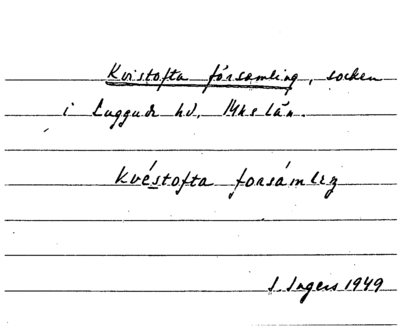 Kvistofta församling, socken
i Luggude hd. Mhs län.
Kvéstofta forsámlıŋ
I. Ingers 1949